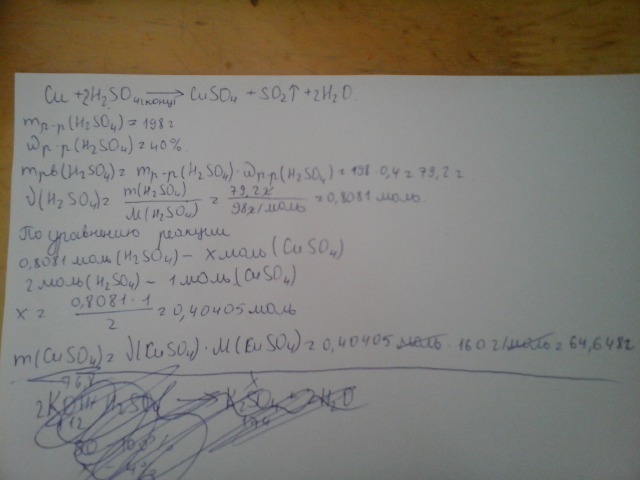 Cu + 2H₂SO₄(конц) → CuSO₄ + SO₂↑ + 2H₂O.
mр-р(H₂SO₄) = 198 г
ωр-р(H₂SO₄) = 40%.
mрв(H₂SO₄) = mр-р(H₂SO₄) · ωр-р(H₂SO₄) = 198 · 0,4 = 79,2 г.
√(H₂SO₄) = m(H₂SO₄) / M(H₂SO₄) = 79,2 г / 98 г/моль = 0,8081 моль.
По уравнению реакции
0,8081 моль (H₂SO₄) – x моль (CuSO₄)
2 моль (H₂SO₄) – 1 моль (CuSO₄)
x = 0,8081 · 1 / 2 = 0,40405 моль
m(CuSO₄) = √(CuSO₄) · M(CuSO₄) = 0,40405 моль · 160 г/моль = 64,648 г
2KOH + H₂SO₄ → K₂SO₄ + 2H₂O
112 174